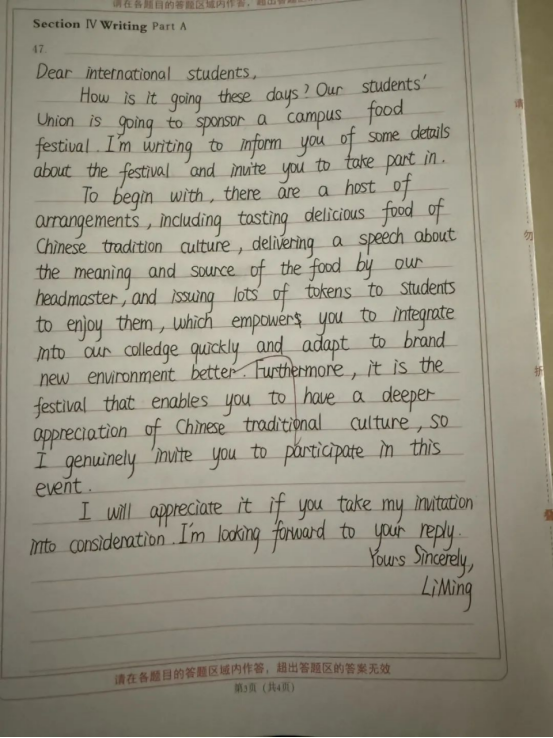 请在各题目的答题区域内作答，超出答题
Section Ⅳ Writing Part A
47.
Dear international students,
How is it going these days? Our students'
Union is going to sponsor a campus food
festival. I'm writing to inform you of some details
about the festival and invite you to take part in.
To begin with, there are a host of
arrangements, including tasting delicious food of
Chinese tradition culture, delivering a speech about
the meaning and source of the food by our
headmaster, and issuing lots of tokens to students
to enjoy them, which empowers you to integrate
into our colledge quickly and adapt to brand
new environment better. Furthermore, it is the
festival that enables you to have a deeper
appreciation of Chinese traditional culture, so
I genuinely invite you to participate in this
event.
I will appreciate it if you take my invitation
into consideration. I'm looking forward to your reply.
Yours Sincerely,
LiMing
请在各题目的答题区域内作答，超出答题区的答案无效
第3页（共4页）
请
勿
折